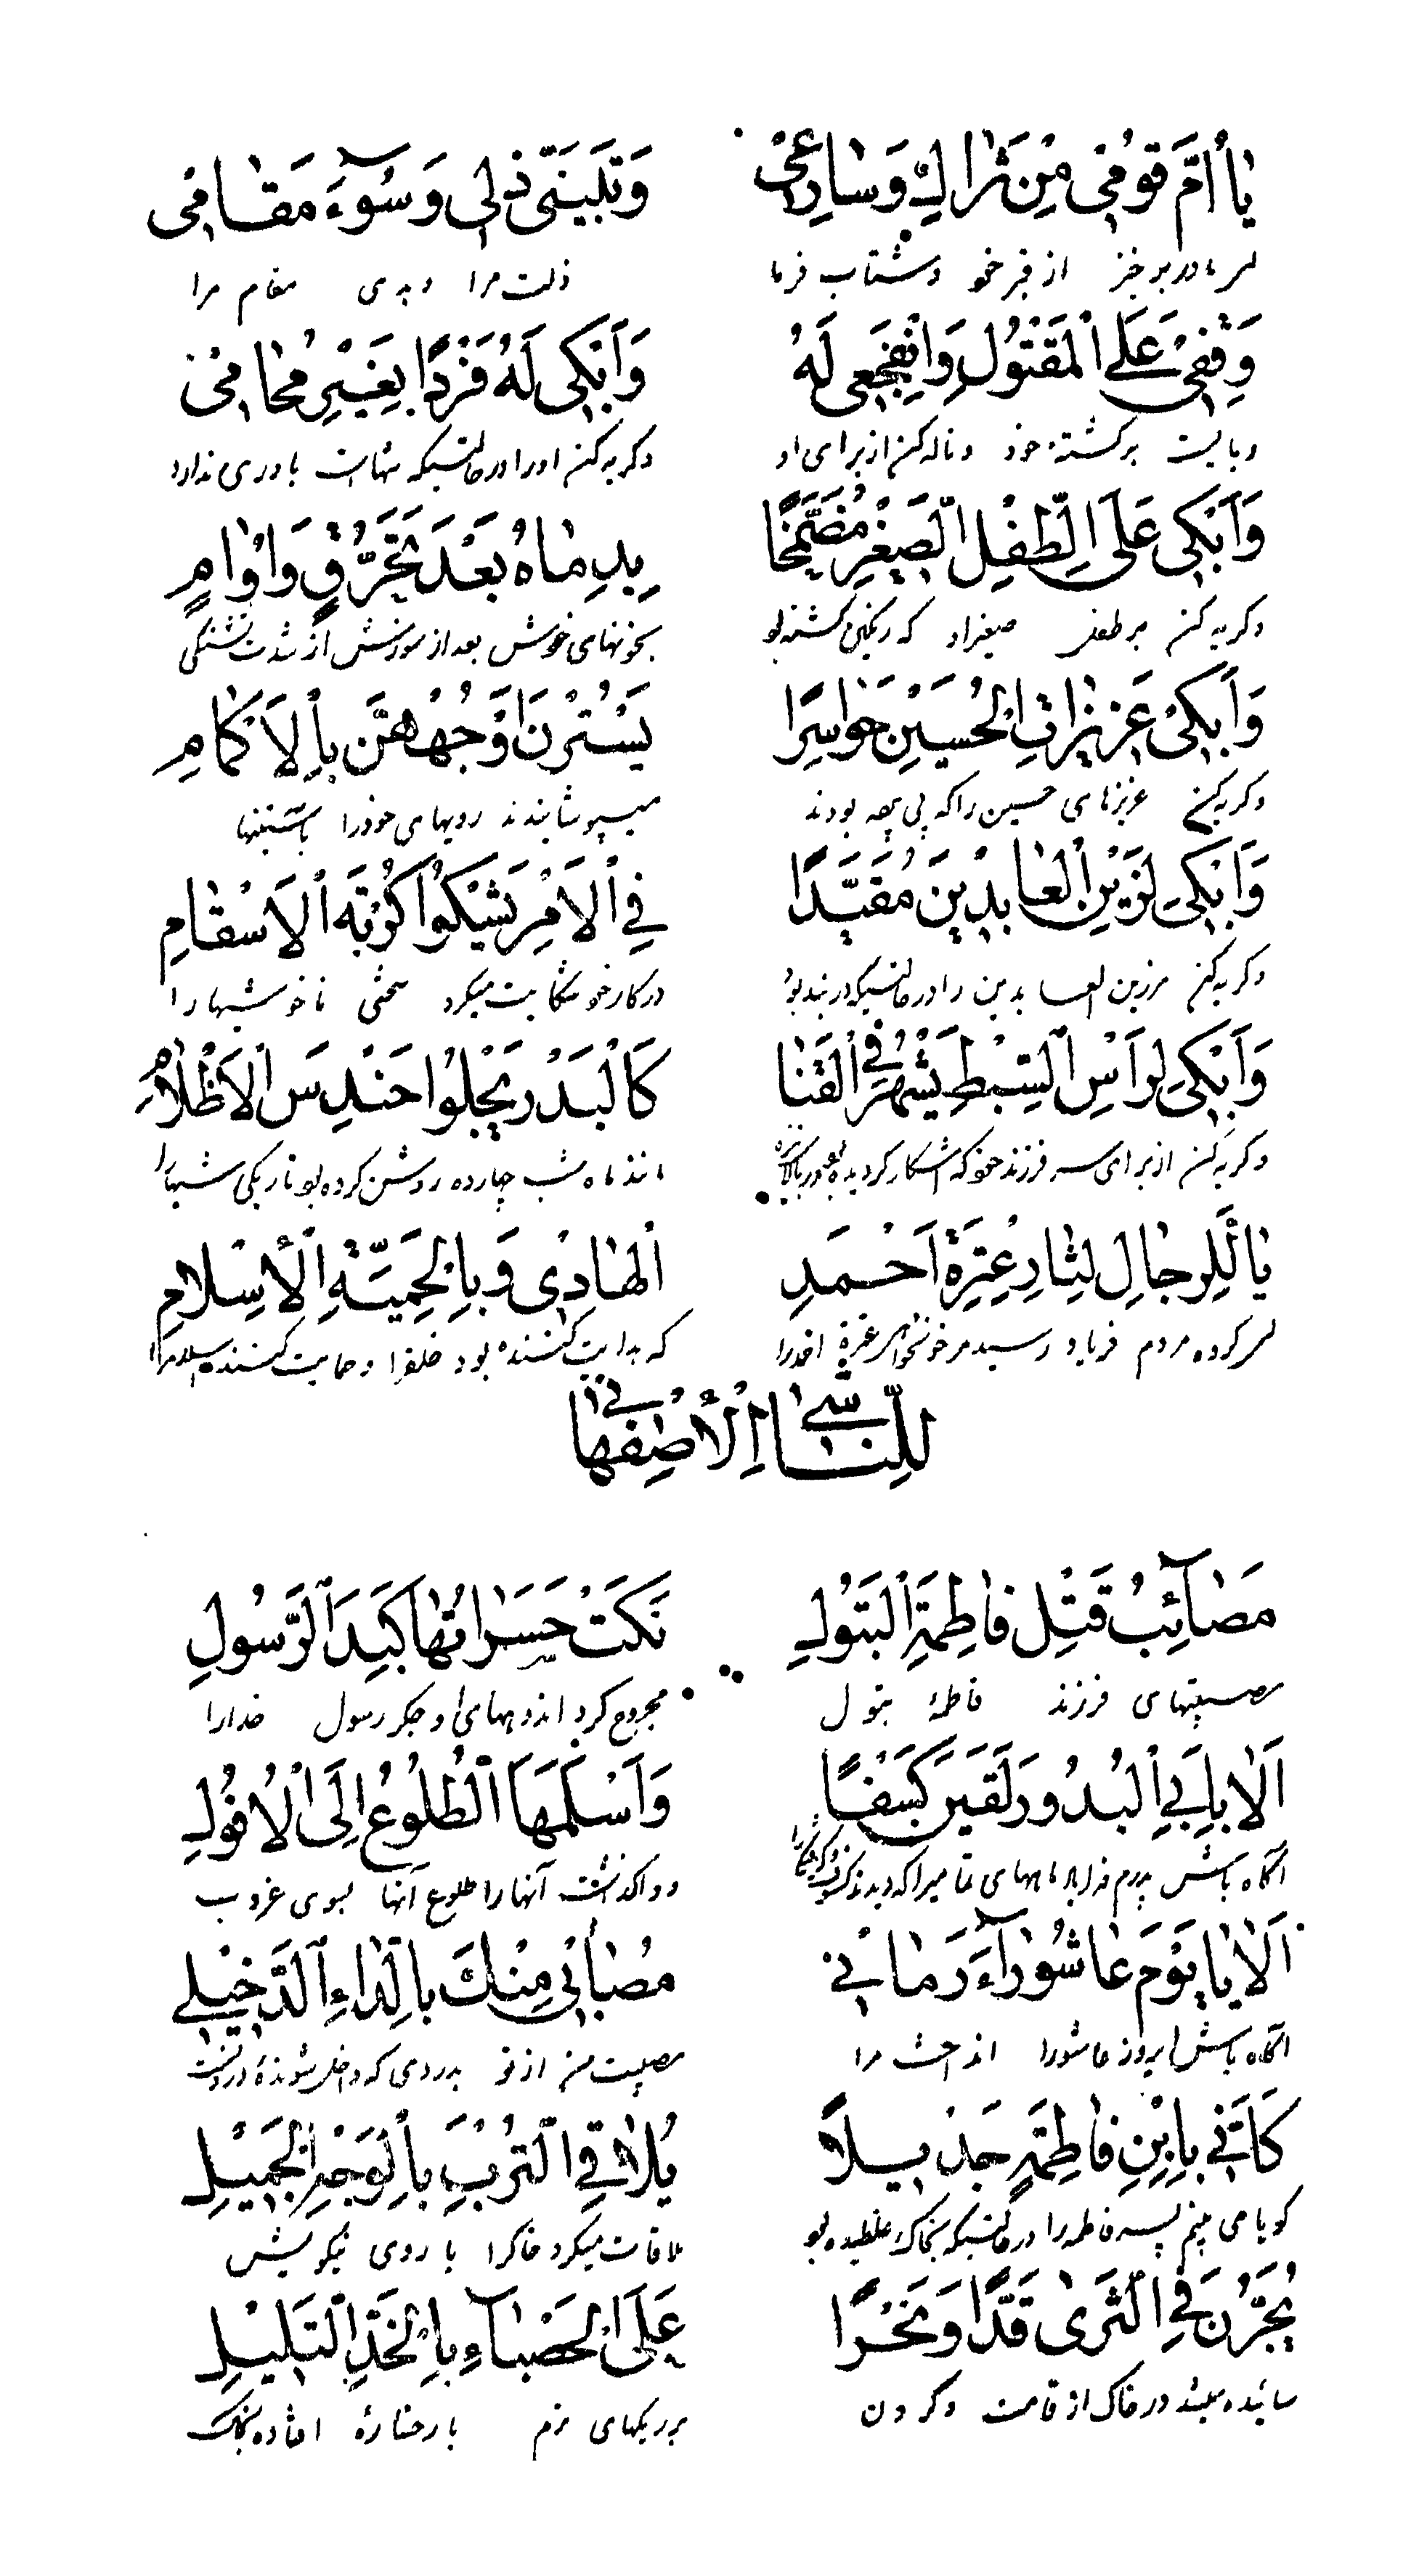 يٰا أُمَّ قُومِي مِنْ ثَرٰاكِ وَسٰارِعِي وَتَبَيَّنِي ذُلِّي وَسُوٓءَ مَقٰامِي
ای مادر برخیز از قبر خود و شتاب فرما ذلت مرا و بدی مقام مرا
وَقِفِي عَلَى الْمَقْتُولِ وَانْفَجِعِي لَهُ وَابْكِي لَهُ فَرْدًا بِغَيْرِ مُحٰامِي
و بایست بر کشته خود و ناله کن از برای او و گریه کن او را در حالتیکه تنها است یاوری ندارد
وَابْكِي عَلَى الطِّفْلِ الصَّغِيرِ مُضَمَّخًا بِدِمٰاهُ بَعْدَ تَحَرُّقٍ وَاُوٰامٍ
و گریه کن بر طفل صغیر او که رنگین گشته بود بخونهای خودش بعد از سوزش از شدت تشنگی
وَابْكِي عَزِيزٰاتِ الْحُسَيْنِ حَوٰاسِرًا يَسْتُرْنَ اَوْجُهَهُنَّ بِالْاَكْمٰامِ
و گریه کن عزیزهای حسین را که بی معجر بودند میپوشانیدند رویهای خود را باستینها
وَابْكِي لِزَيْنِ الْعٰابِدِينَ مُقَيَّدًا فِي الْاَمْرِ يَشْكُوا كُرْبَةَ الْاَسْقٰامِ
و گریه کن بر زین العابدین را در حالتیکه در بند بود در کار خود شکایت میکرد سختی ناخوشیها را
وَابْكِي لِرَاْسِ السِّبْطِ يُشْهَرُ فِي الْقَنٰا كَالْبَدْرِ يَجْلُوا حِنْدِسَ الْاَظْلٰامِ
و گریه کن از برای سر فرزند خود که اشکار گردیده بود در بالای نیزه مانند ماه شب چهارده روشن کرده بود تاریکی شبها را
يٰا لَلرِّجٰالِ لِثٰارِ عِتْرَةِ اَحْمَدِ الْهٰادِي وَبِالْحَمِيَّةِ الْاِسْلٰامِ
ای گروه مردم فریاد رسید مر خونخواهی عترة احمد را که هدایت کننده بود خلق را و حمایت کننده اسلام را
لِلنّٰاشِي الْاِصْفَهٰانِي
مَصٰآئِبُ قَتْلِ فٰاطِمَةِ الْبَتُولِ نَكَتْ حَسَرٰاتُهٰا كَبِدَ الرَّسُولِ
مصیبتهای فرزند فاطمهٔ بتول مجروح کرد اندوههای او جگر رسول خدا را
اَلٰا بِاَبِي الْبُدُورَ لَقِينَ كَسْفًا وَاَسْلَمَهَا الطُّلُوعُ اِلَى الْاُفُولِ
آگاه باش پدرم فدای ماههای تمامیرا که دیدند کسوف و گرفتگی را و واگذاشت آنها را طلوع آنها بسوی غروب
اَلٰا يٰا يَوْمَ عٰاشُورٰآءَ رَمٰانِي مُصٰابِي مِنْكَ بِالدّٰاءِ الدَّخِيلِ
آگاه باش ایروز عاشورا انداخت مرا مصیبت من از تو بدردی که داخل شونده در دلست
كَاَنِّي بِابْنِ فٰاطِمَةٍ جَدِيلًا يُلٰاقِي التُّرْبَ بِالْوَجْهِ الْجَمِيلِ
گویا می بینم پسر فاطمه را در حالتیکه بخاک غلطیده بود ملاقات میکرد خاکرا با روی نیکویش
يُجَرَّرْنَ فِي الثَّرٰى قَدًّا وَنَحْرًا عَلَى الْحَصْبٰآءِ بِالْخَدِّ التَّلِيلِ
سائیده میشد در خاک از قامت و گردن بر ریگهای نرم با رخسارهٔ افتاده بخاک